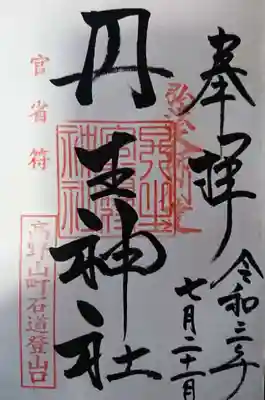 奉拝
令和三年
七月二十一日
丹生神社
官省符
高野山町石道登山口